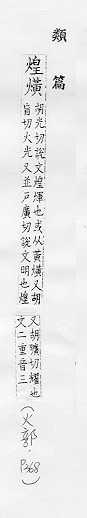 類篇
煌熿
胡光切說文煌煇也或从黃熿又胡
盲切火光又並戶廣切說文明也煌
又胡曠切耀也
文二重音三
(火部.P368)